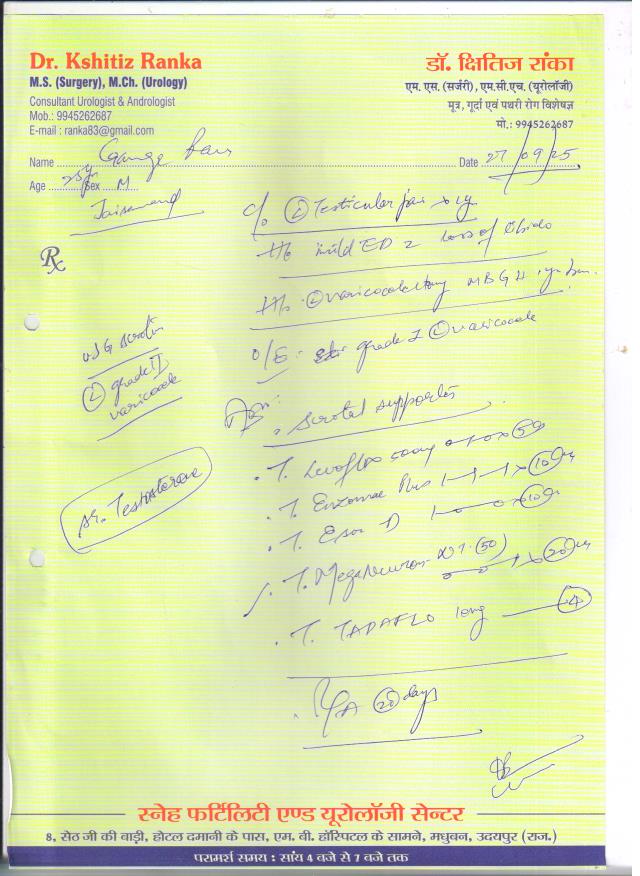 Dr. Kshitiz Ranka
M.S. (Surgery), M.Ch. (Urology)
Consultant Urologist & Andrologist
Mob.: 9945262687
E-mail : ranka83@gmail.com
डॉ. क्षितिज रांका
एम. एस. (सर्जरी), एम.सी.एच. (यूरोलॉजी)
मूत्र, गूर्दा एवं पथरी रोग विशेषज्ञ
मो.: 9945262687
Name Gange Date 27/09/25
Age 25y Sex M
Rx
c/o (L) Testicular pain
H/o mild ED loss of libido
H/o (L) varicocelectomy MBGH
O/E: grade I (L) varicocele
USG scrotum
(L) grade II
varicocele
Sr. Testosterone
Scrotal supporter
T. Levoflox 500mg x 5d
T. Enzomac Plus 1-1-1 x 10d
T. Esoz D 1-0-0 x 10d
T. MegaNeuron NT (50) x 20
T. TADAFLO 10mg 4
R/A 20 days
स्नेह फर्टिलिटी एण्ड यूरोलॉजी सेन्टर
8, सेठ जी की बाड़ी, होटल दमानी के पास, एम. बी. हॉस्पिटल के सामने, मधुबन, उदयपुर (राज.)
परामर्श समय : सांय 4 बजे से 7 बजे तक